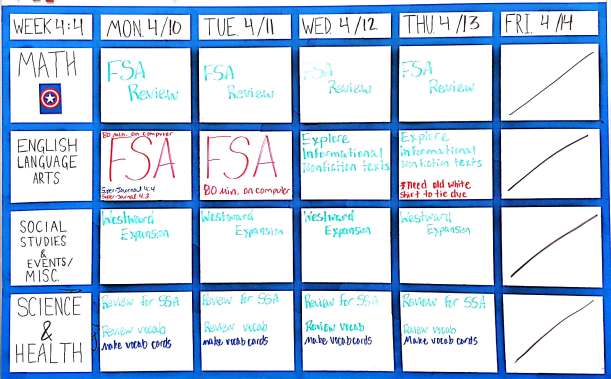 WEEK 4:4
MON. 4/10
TUE. 4/11
WED. 4/12
THU. 4/13
FRI. 4/14
MATH
FSA
Review
FSA
Review
FSA
Review
FSA
Review
ENGLISH
LANGUAGE
ARTS
80 min. on computer
FSA
FSA
80 min. on computer
Explore
Informational
Nonfiction texts
Explore
informational
Nonfiction texts
Need old white
shirt to tie dye
SOCIAL
STUDIES
&
EVENTS/
MISC.
Westward
Expansion
Westward
Expansion
Westward
Expansion
Westward
Expansion
SCIENCE
&
HEALTH
Review for SSA
Review vocab
make vocab cards
Review for SSA
Review vocab
make vocab cards
Review for SSA
Review vocab
make vocab cards
Review for SSA
Review vocab
Make vocab cards